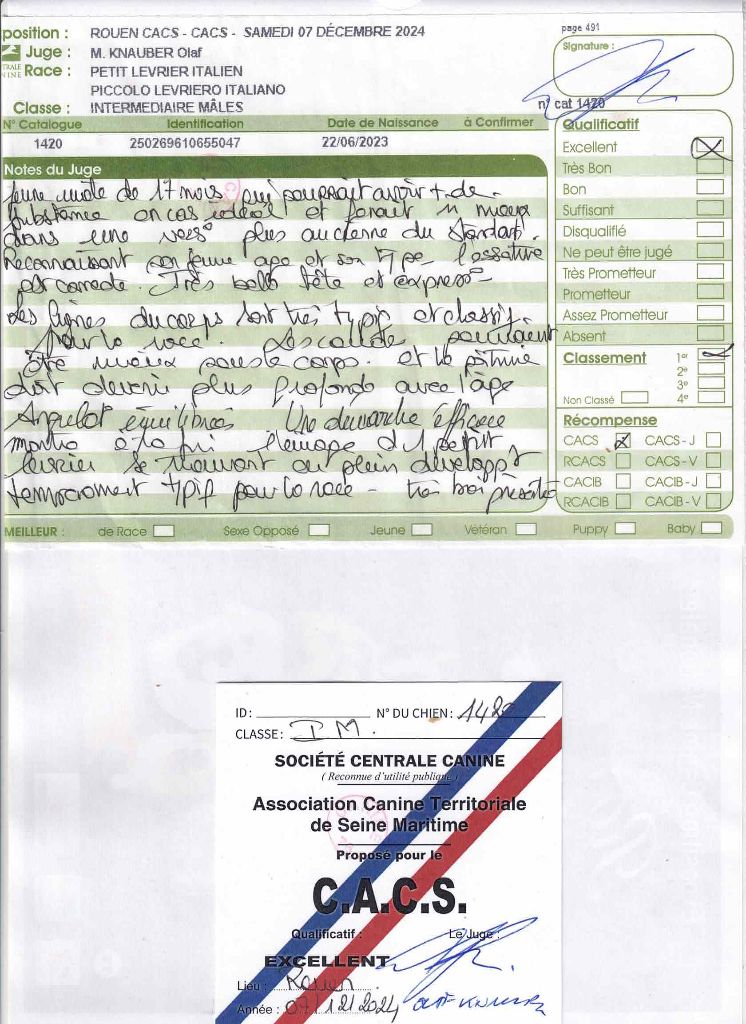 position : ROUEN CACS - CACS - SAMEDI 07 DÉCEMBRE 2024
Juge : M. KNAUBER Olaf
Race : PETIT LEVRIER ITALIEN
PICCOLO LEVRIERO ITALIANO
Classe : INTERMEDIAIRE MÂLES
page 491
Signature :
n° cat 1420
N° Catalogue Identification Date de Naissance à Confirmer
1420 250269610655047 22/06/2023
Notes du Juge
Jeune mâle de 17 mois qui pourrait avoir + de
substance en cas idéal et ferait mieux
dans une vers° plus ancienne du standard.
Reconnaissant son jeune age et son type l'ossature
est correcte. Très belle tête et express°
Les lignes du corps sont très typic et classic
pour la race. Les pourraient
être mieux sous le corps. et la poitrine
doit devenir plus profonde avec l'âge
Angulat° équilibrées Une démarche efficace
montre à la fin l'image d'1 petit
levrier se trouvant en plein développt
tempérament typic pour la race - très bien présenté
Qualificatif
Excellent
Très Bon
Bon
Suffisant
Disqualifié
Ne peut être jugé
Très Prometteur
Prometteur
Assez Prometteur
Absent
Classement 1er
2e
3e
Non Classé 4e
Récompense
CACS CACS - J
RCACS CACS - V
CACIB CACIB - J
RCACIB CACIB - V
MEILLEUR : de Race Sexe Opposé Jeune Vétéran Puppy Baby
ID : N° DU CHIEN : 1420
CLASSE : I M.
SOCIÉTÉ CENTRALE CANINE
( Reconnue d'utilité publique )
Association Canine Territoriale
de Seine Maritime
Proposé pour le
C.A.C.S.
Qualificatif : Le Juge :
EXCELLENT
Lieu : Rouen
Année : 07/12/2024 OLAF KNAUBER